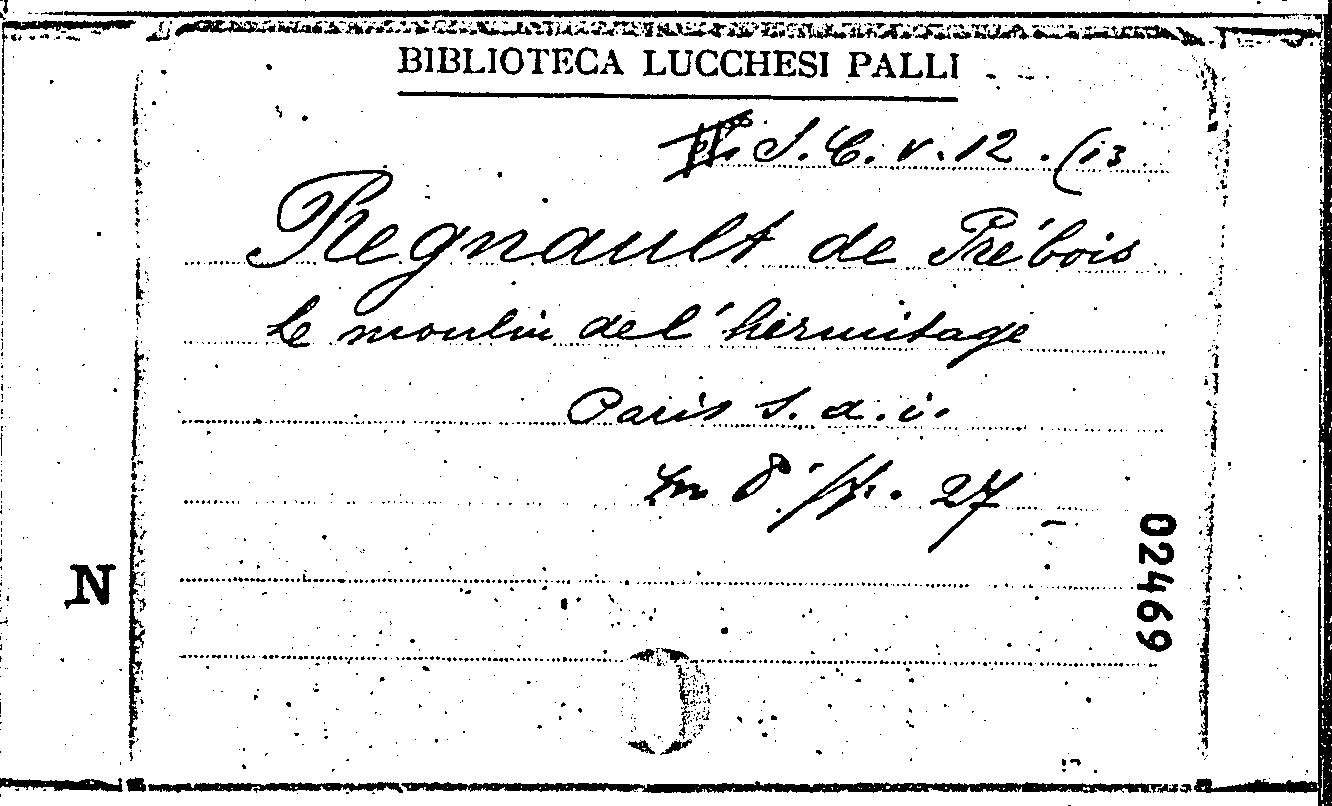 BIBLIOTECA LUCCHESI PALLI
S. C. v. 12. (13
Regnault de Prébois
le moulin de l'hermitage
Paris s. a. i.
in 8° pp. 27
N
02469